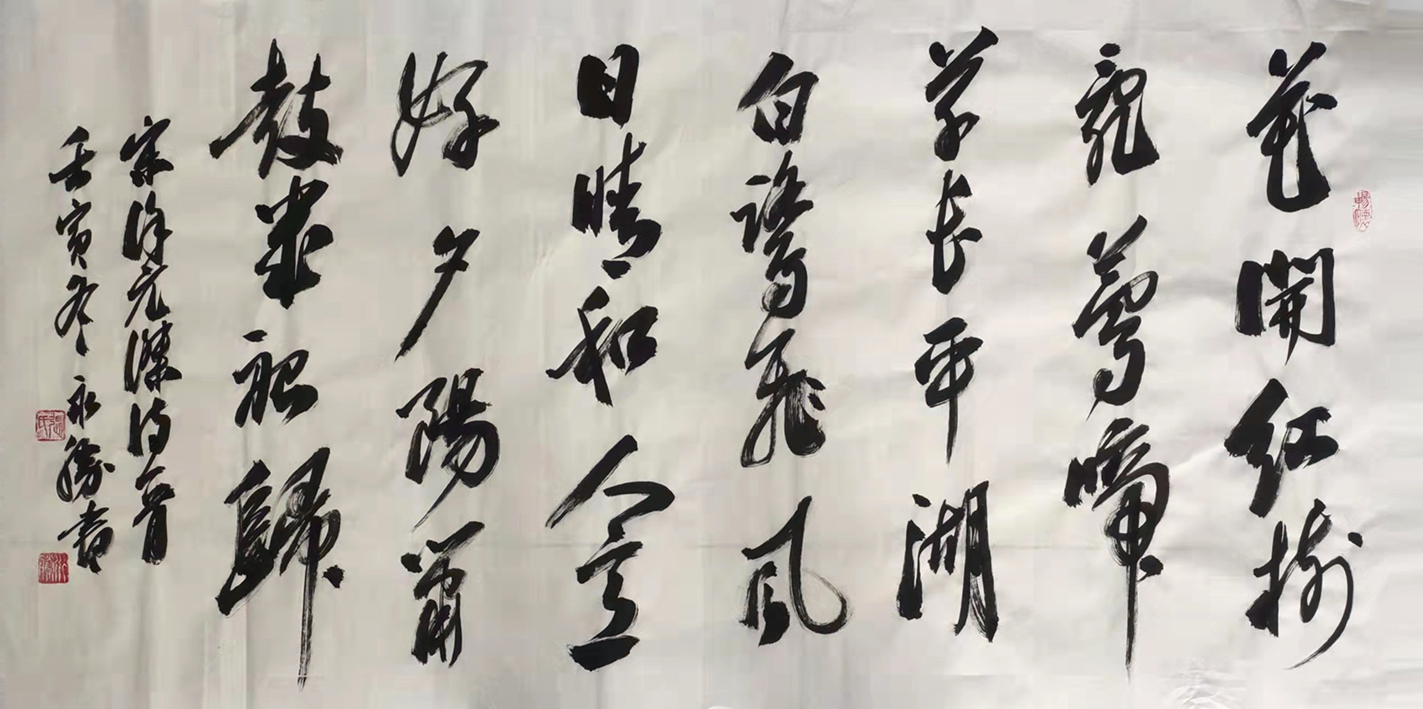 花開紅樹
亂鶯啼
草長平湖
白鷺飛風
日晴和人意
好夕陽簫
鼓幾船歸
宋徐元傑詩一首
壬寅冬永勝書
張氏